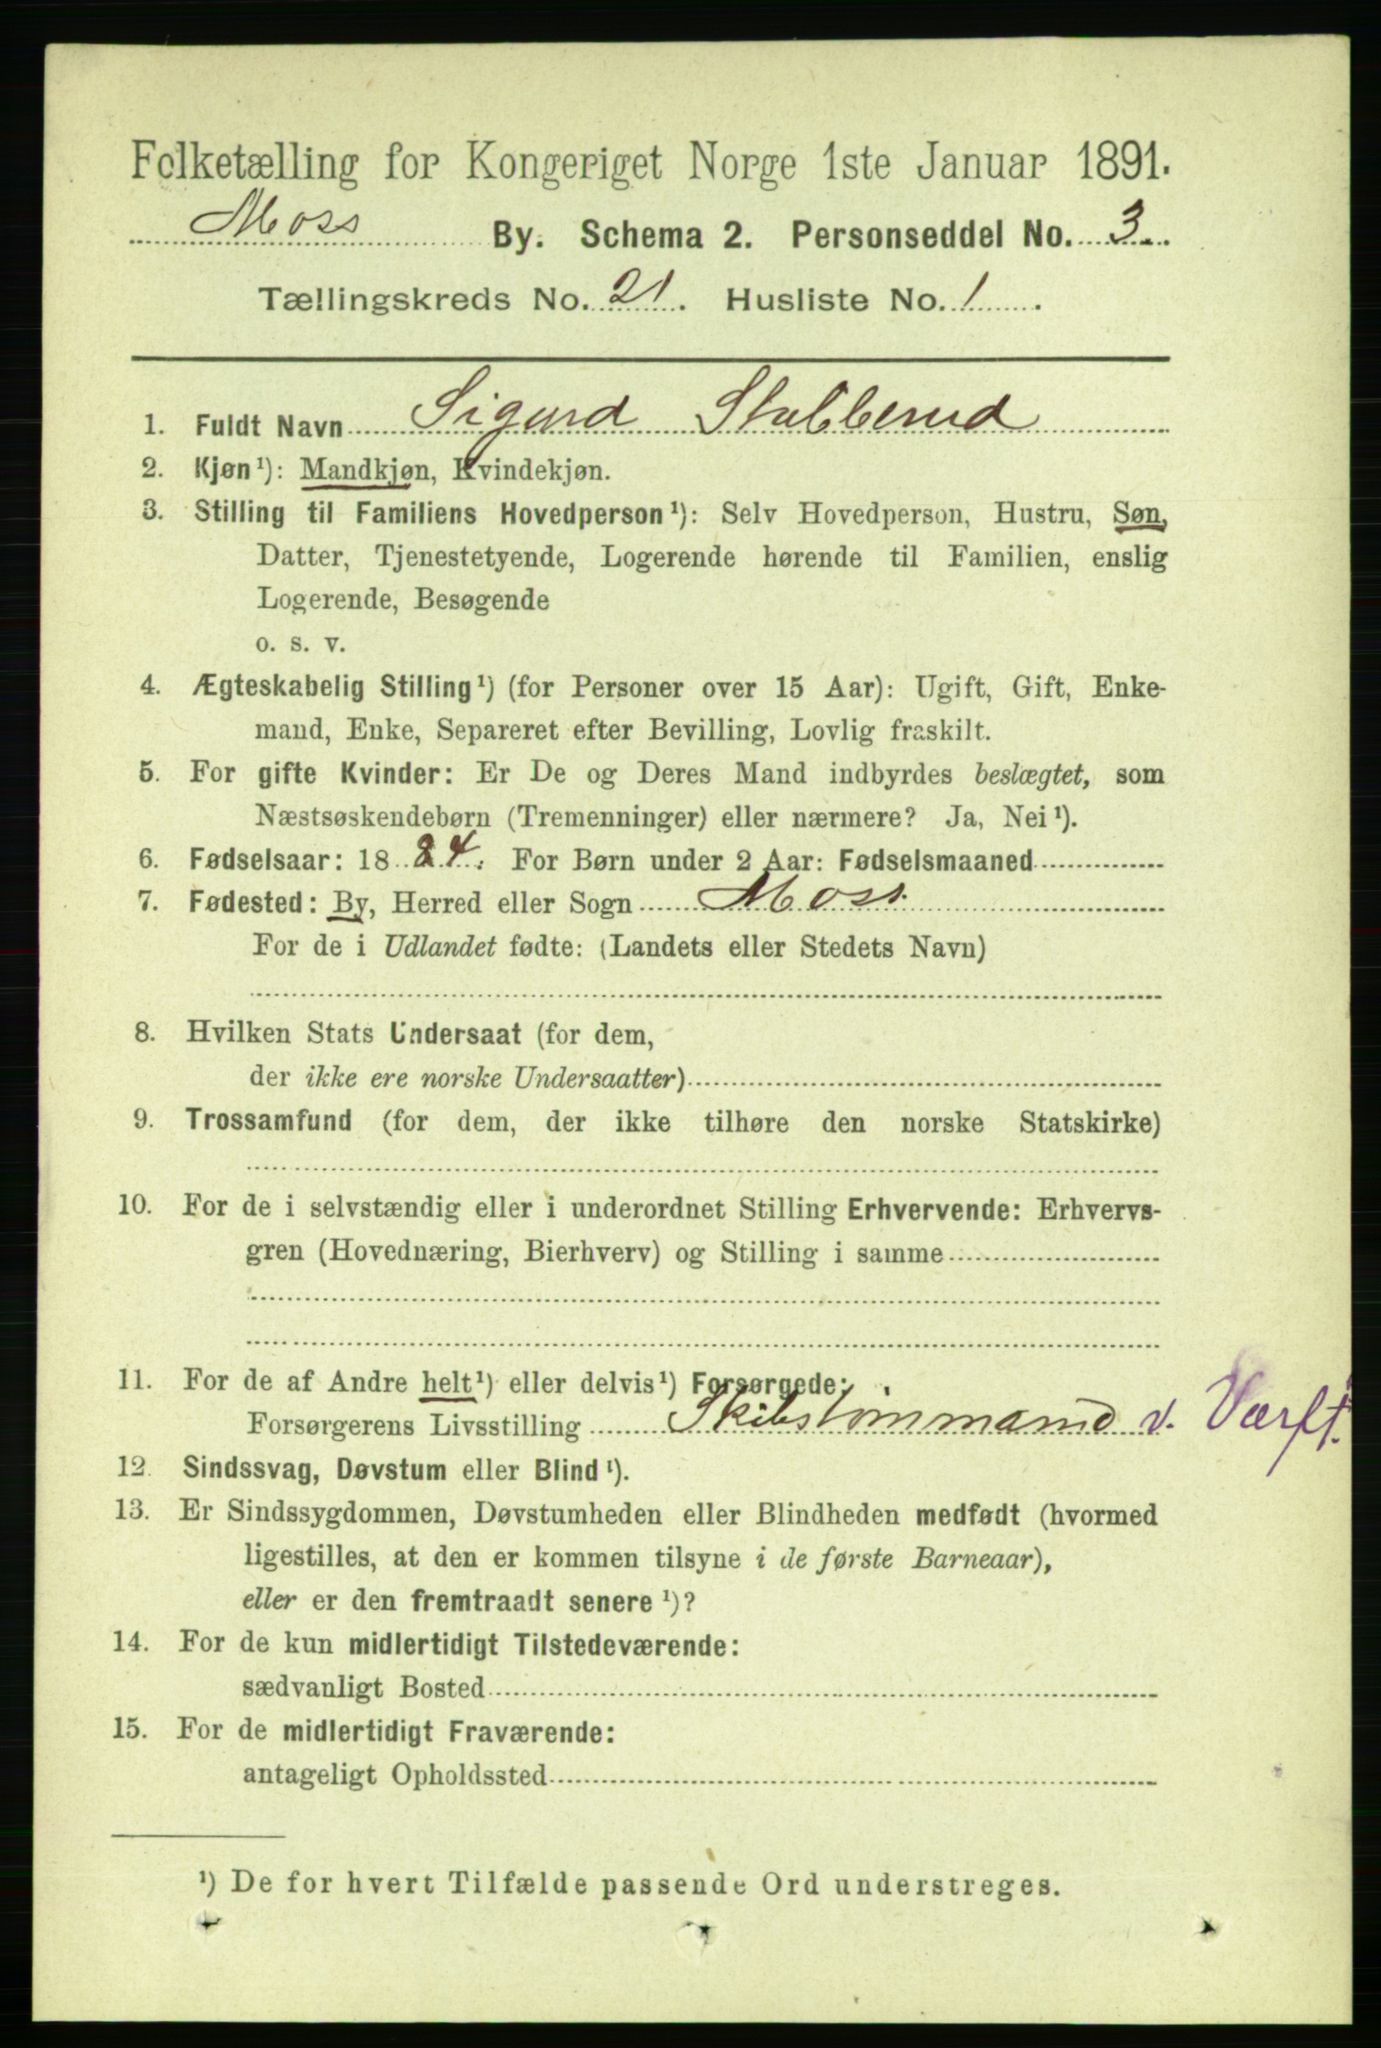 Folketælling for Kongeriget Norge 1ste Januar 1891.
Moss By. Schema 2. Personseddel No. 3
Tællingskreds No. 21. Husliste No. 1.
1. Fuldt Navn Sigurd Stubberud
2. Kjøn¹): Mandkjøn, Kvindekjøn.
3. Stilling til Familiens Hovedperson¹): Selv Hovedperson, Hustru, Søn,
Datter, Tjenestetyende, Logerende hørende til Familien, enslig
Logerende, Besøgende
o. s. v.
4. Ægteskabelig Stilling¹) (for Personer over 15 Aar): Ugift, Gift, Enke-
mand, Enke, Separeret efter Bevilling, Lovlig fraskilt.
5. For gifte Kvinder: Er De og Deres Mand indbyrdes beslægtet, som
Næstsøskendebørn (Tremenninger) eller nærmere? Ja, Nei¹).
6. Fødselsaar: 1884. For Børn under 2 Aar: Fødselsmaaned
7. Fødested: By, Herred eller Sogn Moss.
For de i Udlandet fødte: (Landets eller Stedets Navn)
8. Hvilken Stats Undersaat (for dem,
der ikke ere norske Undersaatter)
9. Trossamfund (for dem, der ikke tilhøre den norske Statskirke)
10. For de i selvstændig eller i underordnet Stilling Erhvervende: Erhvervs-
gren (Hovednæring, Bierhverv) og Stilling i samme
11. For de af Andre helt¹) eller delvis¹) Forsørgede:
Forsørgerens Livsstilling Skibstømmermand v. Værft.
12. Sindssvag, Døvstum eller Blind¹).
13. Er Sindssygdommen, Døvstumheden eller Blindheden medfødt (hvormed
ligestilles, at den er kommen tilsyne i de første Barneaar),
eller er den fremtraadt senere¹)?
14. For de kun midlertidigt Tilstedeværende:
sædvanligt Bosted
15. For de midlertidigt Fraværende:
antageligt Opholdssted
¹) De for hvert Tilfælde passende Ord understreges.